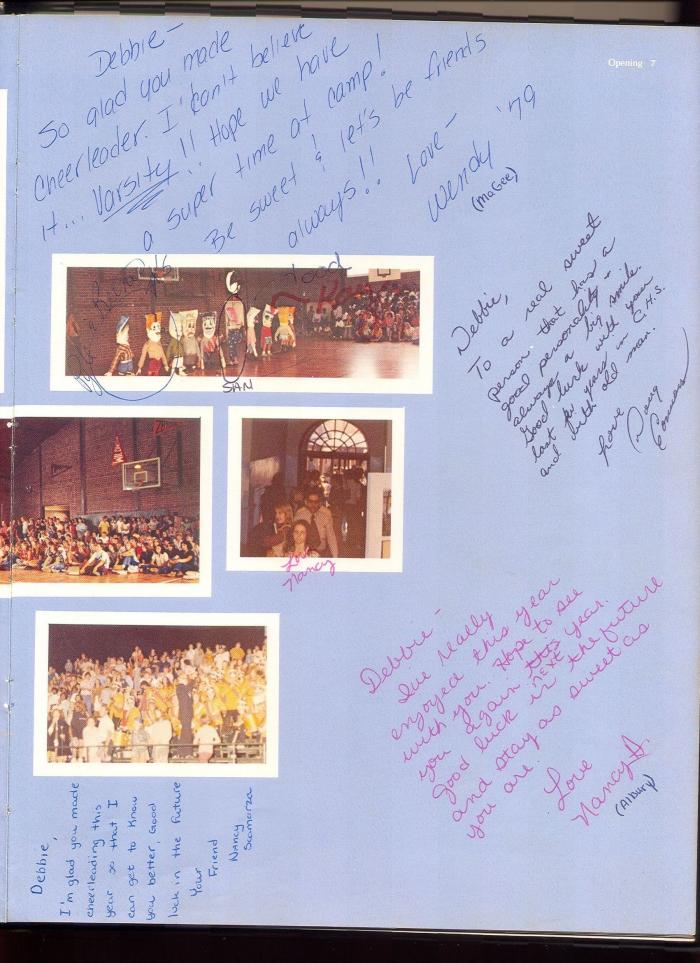 Opening 7
Debbie-
So glad you made
cheerleader. I can't believe
it... Varsity!! Hope we have
a super time at camp!
Be sweet & let's be friends
always!! Love-
Wendy '79
(MaGee)
Todd
SAN
Debbie,
To a real sweet
person that has a
good personality -
always a big smile.
Good luck with your
last yr years in C.H.S.
and with old man.
Love
Doug
Love
Nancy
Debbie-
I've really
enjoyed this year
with you. Hope to see
you again this next year.
Good luck in the future
and stay as sweet as
you are.
Love
Nancy A.
(Albury)
Debbie,
I'm glad you made
cheerleading this
year so that I
can get to know
you better, Good
luck in the future
Your
Friend
Nancy